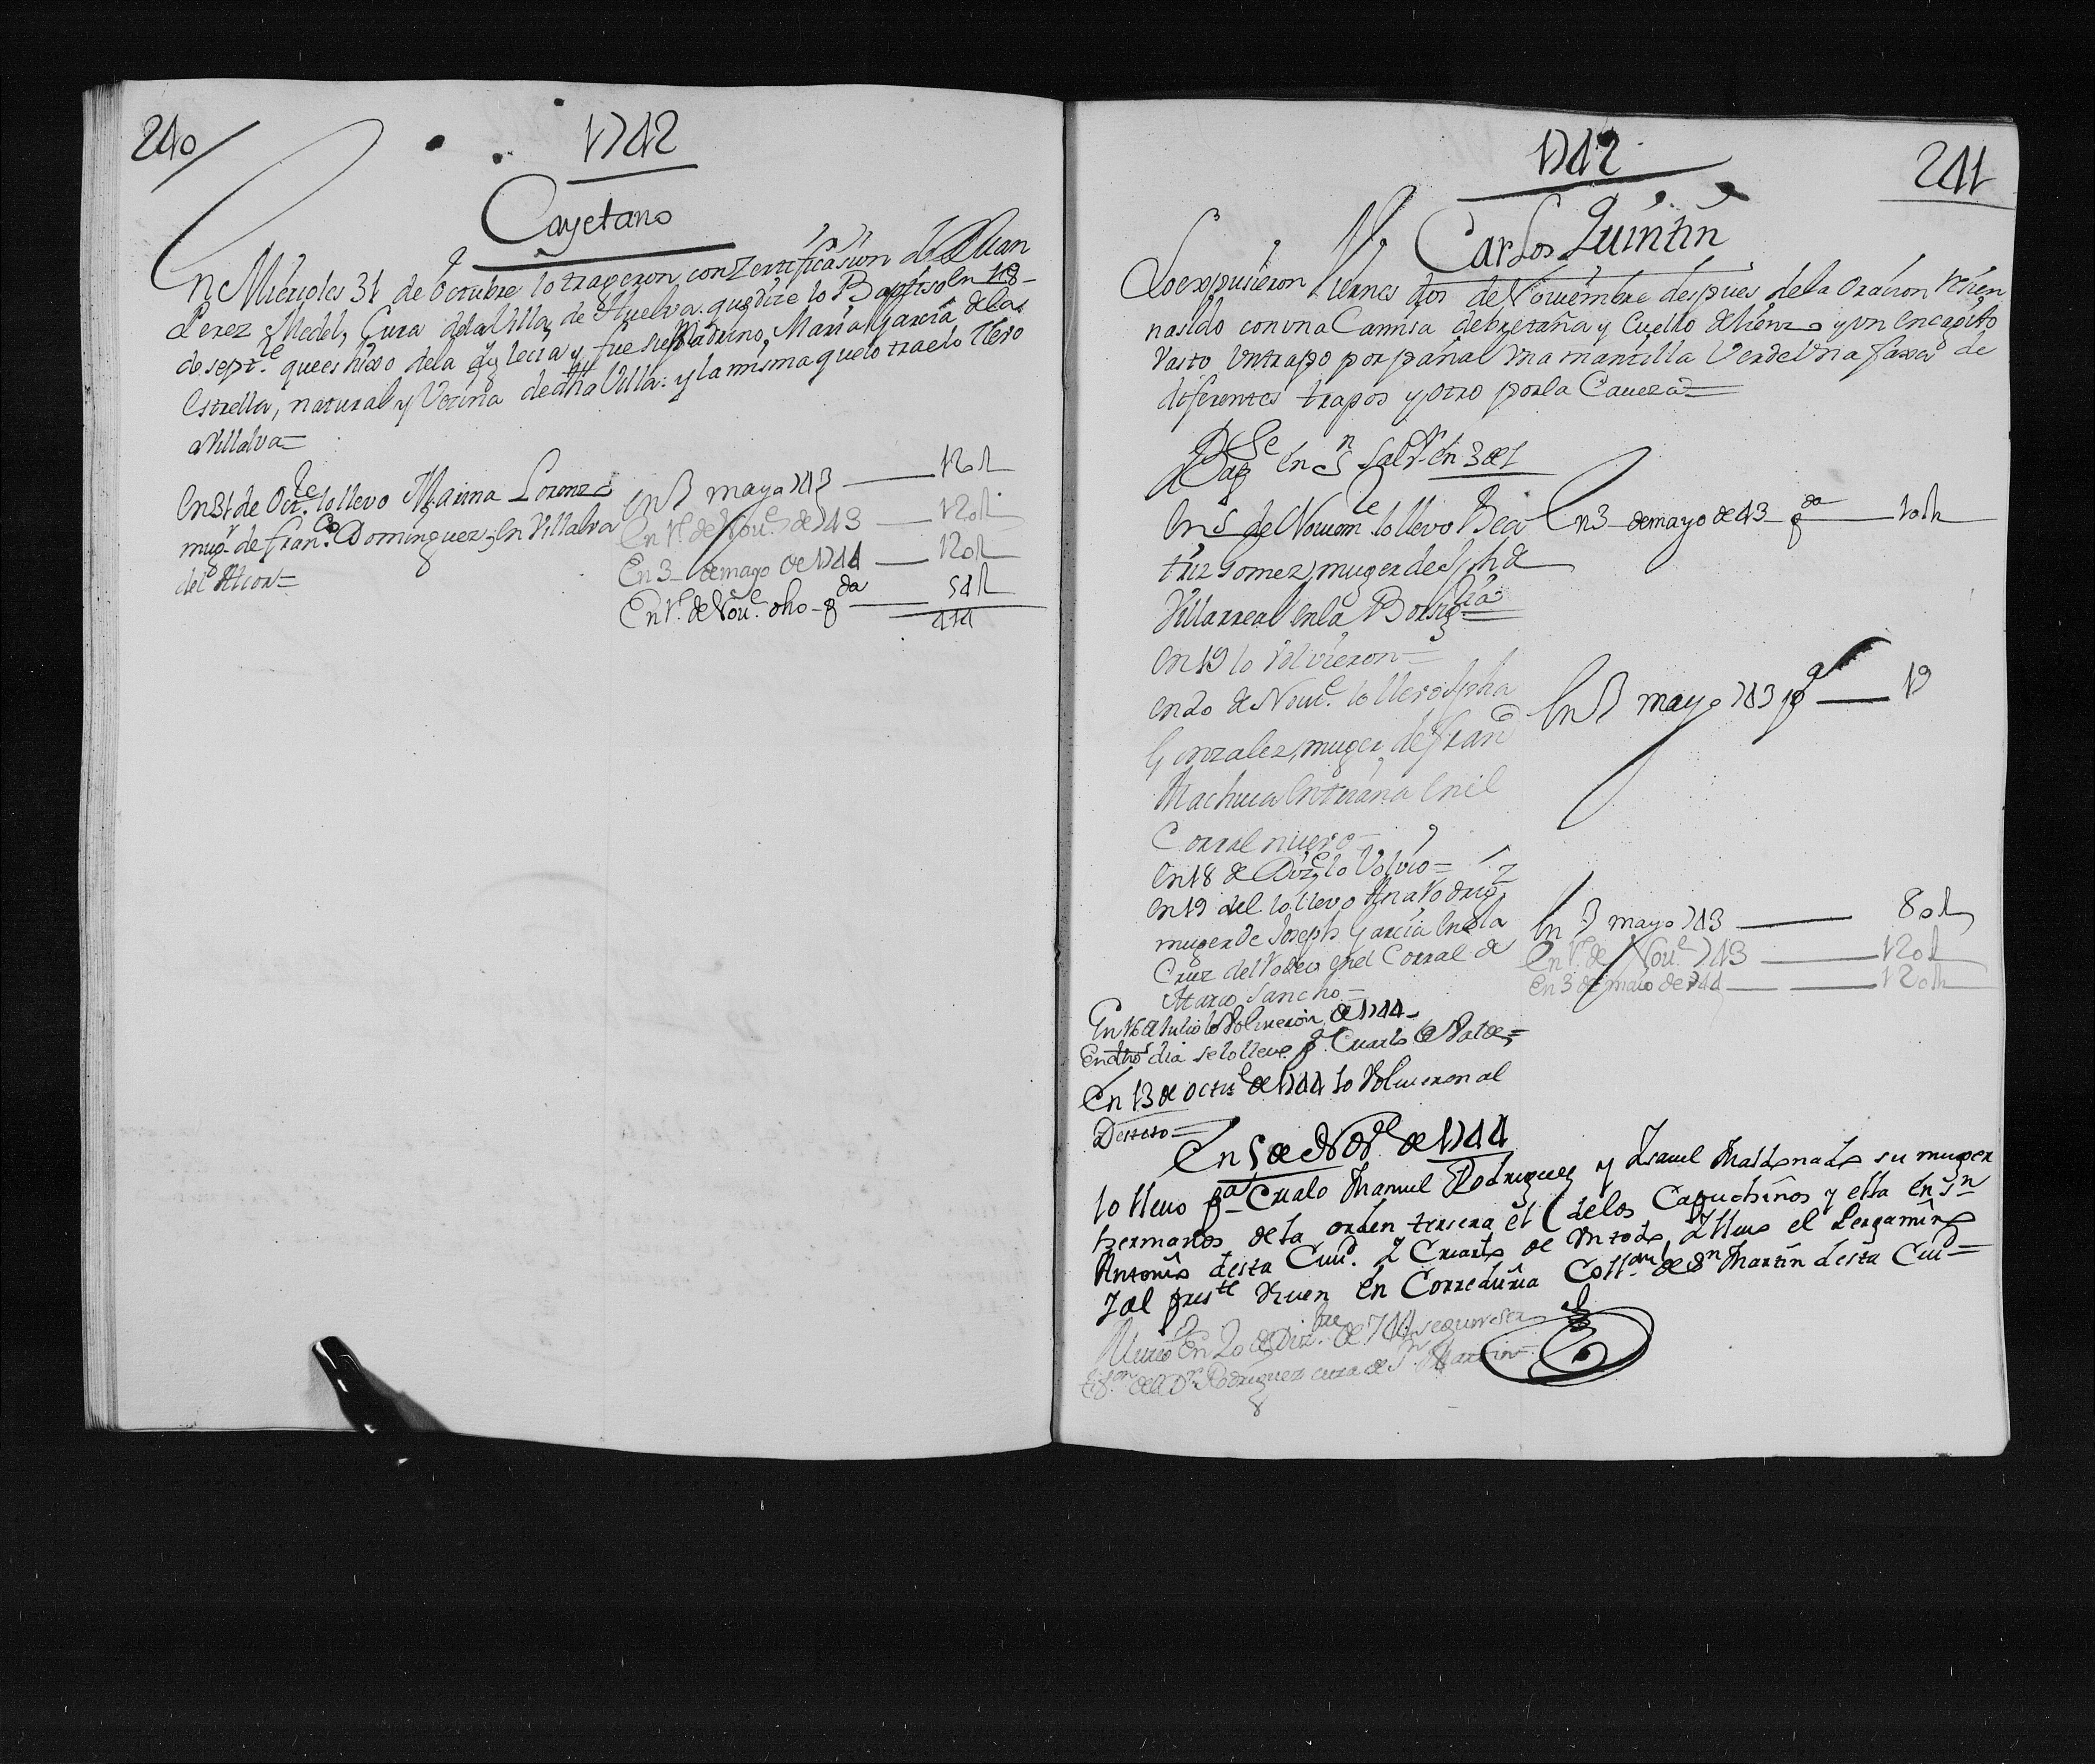 240
1742
Cayetano
En Miercoles 31 de Octubre lo trageron con Zertificasion de Dn Juan
Perez y Medel, Cura de la Villa de Huelva que dize lo Baptiso en 18
de septe. que es hixo de la Yglecia y fue su Padrino, Maria Garcia de las
Estrella, natural y Vecina de dha Villa: y la misma que lo trae lo llevo
a Villalva=
En 31 de Octe. lo llevo Marina Lorenzo
mugr. de Franco. Dominguez en Villalva
del Alcor=
En 3 mayo 743 — 120 R
En 1º de Noue. de 743 — 120 R
En 3 de mayo de 1744 — 120 R
En 1º de Noue. dho — 54 R
414
1742
241
Carlos Quintin
Lo expusieron Viernes dos de Noviembre despues de la Oracion rezien
nasido con una Camisa de bretaña y Cuello de lienzo y un encagito
vasto un trapo por pañal una mantilla Verde una faxa de
diferentes trapos y otro por la Cavera=
Bapse en Sn Salvr. en 3 del
En 5 de Novieme lo llevo Bea
triz Gomez, muger de Jph de
Villarreal en la Borsigria
En 3 de mayo de 43 — 10 R
En 19 lo Volvieron=
en 20 de Noue. lo llevo Jpha
Gonzalez, muger de Franco
Machuca en triana en el
Corral nuevo
En 3 mayo 743 — 19
En 18 de Dize lo Volvio=
en 19 del lo llevo Ana Rodrigz
muger de Joseph Garcia en la
Cruz del Rodeo en el Corral de
Marco Sancho=
En 3 mayo 743 — 80 R
En 1º de Noue 743 — 120 R
En 3 de maio de 744 — 120 R
En 16 de Julio lo Volvieron de 1744
En dho dia se lo lleuo pa. Cuarto
En 13 de octue de 1744 lo Voluieron al
Desteto=
En 5 de Noue de 1744
lo lleuo pa Crialo Manuel Rodriguez y Ysauel Maldonado su muger
hermanos de la orden tersera el de los Capuchinos y ella en Sn
Antonio desta Ciud. Y Cuarto de Un todo, Y lleuo el Pergamino
Y al preste Viuen en Correduria Collon de Sn Martin desta Ciud=
Murio En 20 de Dizbre de 744 segun ser
tifon. del Dr. Rodriguez cura de Sn. Martin=